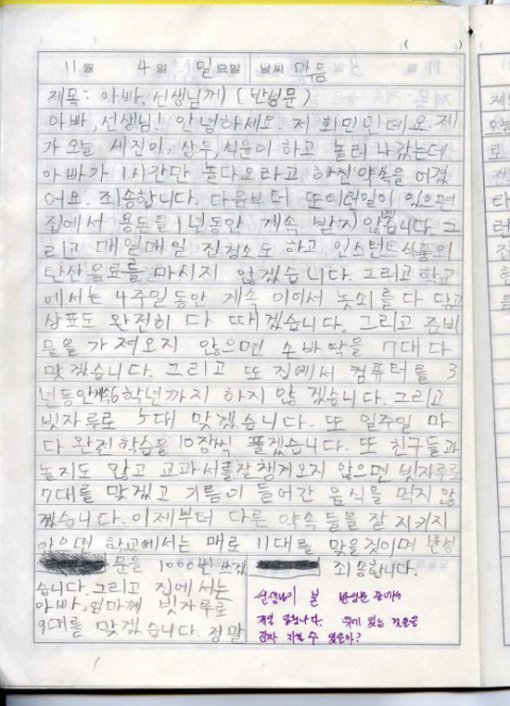 11월 4일 일요일 날씨 맑음
제목: 아빠, 선생님께 (반성문)
아빠, 선생님! 안녕하세요. 저 희민인데요. 제
가 오늘 세진이, 상우, 식윤이 하고 놀러 나갔는데
아빠가 1시간만 놀다오라고 하신약속을 어겼
어요. 죄송합니다. 다음부터 또이런일이 있으면
집에서 용돈을 1년동안 계속 받지 않겠습니다. 그
리고 매일매일 집청소도 하고 인스턴트식품외
탄산음료를 마시지 않겠습니다. 그리고 학교
에서는 4주일동안 계속 이어서 놋쇠를 다 닦고
상표도 완전히 다 때겠습니다. 그리고 준비
물을 가져오지 않으면 손바딱을 7대 다
맞겠습니다. 그리고 또 집에서 컴퓨터를 3
년동안 계속 6학년까지 하지 않 겠습니다. 그리고
빗자루로 5대 맞겠습니다. 또 일주일 마
다 완전학습을 10장씩 풀겠습니다. 또 친구들과
놀지도 않고 교과서를 잘 챙겨오지 않으면 빗자루로
7대를 맞겠고 기름이 들어간 음식을 먹지 않
겠습니다. 이제부터 다른 약속 들을 잘 지키지
않으면 학교에서는 매로 11대를 맞을것이며 반성
문을 1000번 쓰겠
습니다. 그리고 집에서는
아빠, 엄마께 빗자루로
9대를 맞겠습니다. 정말
죄송합니다.
선생님이 본 반성문 중에서
제일 입니다. 여기 있는 것들을
과자 지킬 수 있을까?